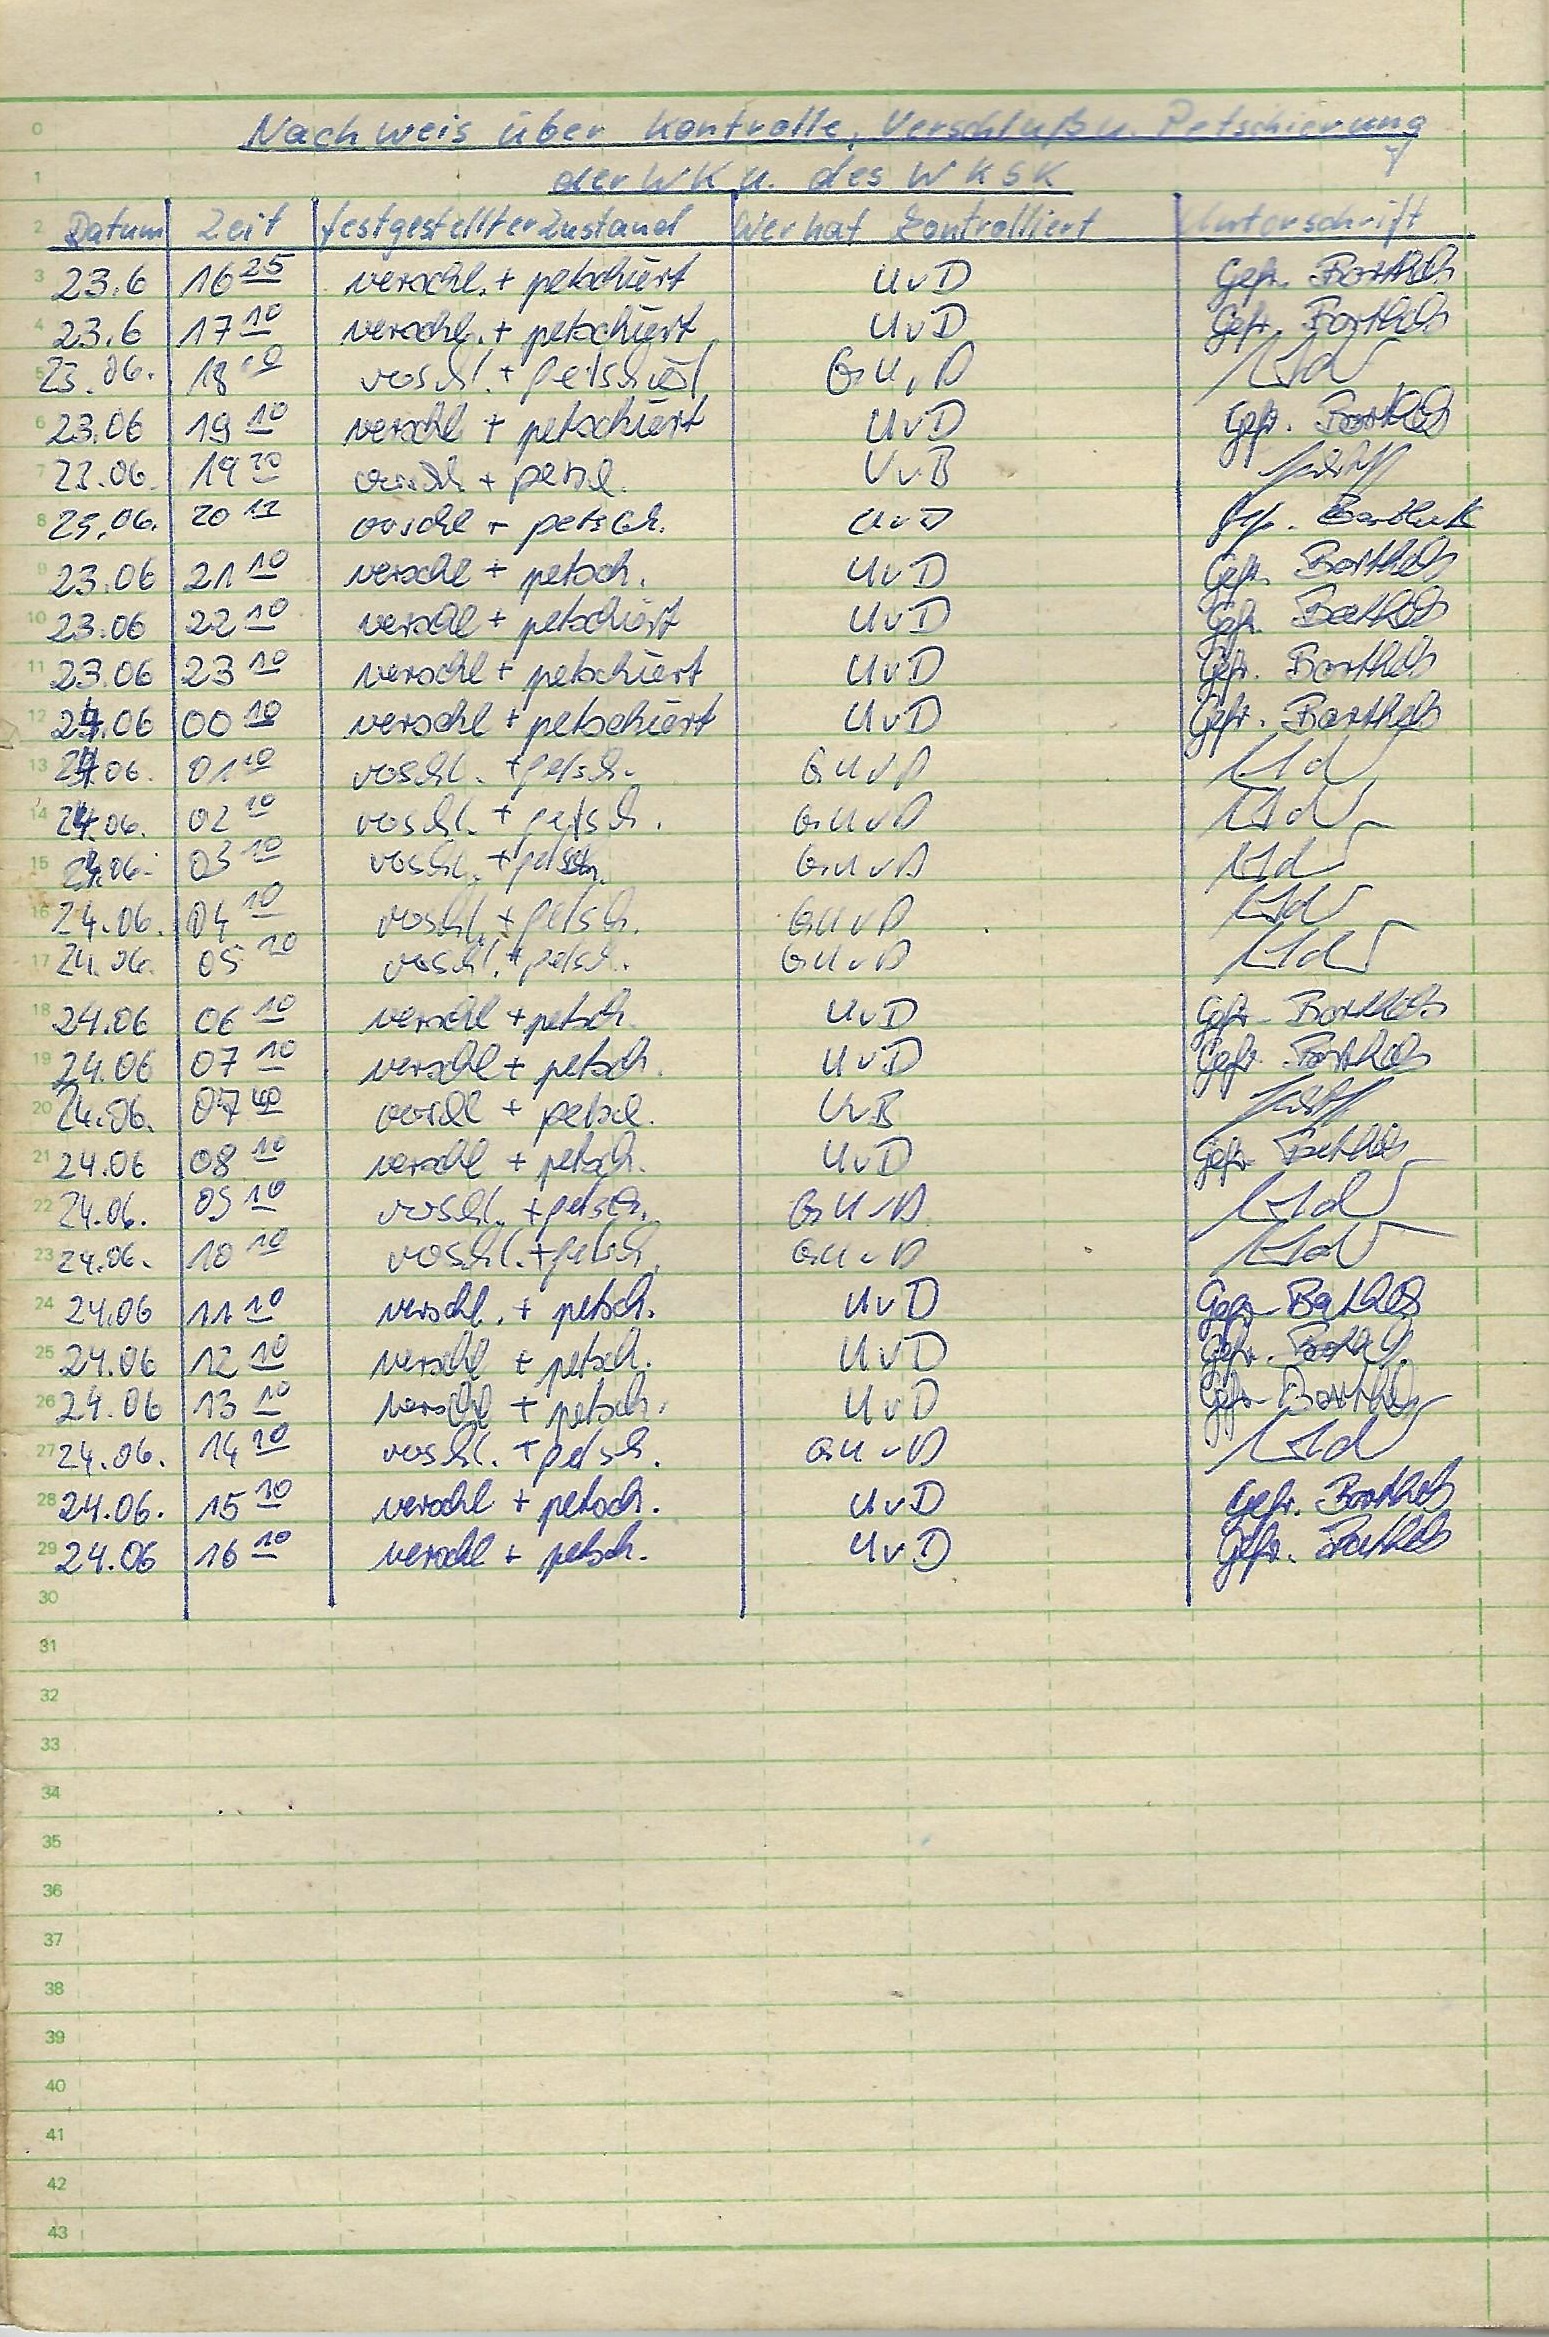 0 Nachweis über Kontrolle, Verschluß u. Petschierung
1 der WK u. des WKSK
2 Datum Zeit festgestellter Zustand Wer hat kontrolliert Unterschrift
3 23.6 16 25 verschl. + petschiert UvD Gefr. Barthels
4 23.6 17 10 verschl. + petschiert UvD Gefr. Barthels
5 23.06. 18 10 verschl. + petschiert GUvD
6 23.06 19 10 verschl + petschiert UvD Gefr. Barthels
7 23.06. 19 20 verschl + petsch. UvB
8 23.06. 20 verschl + petsch. UvD Gefr.
9 23.06 21 10 verschl + petsch. UvD Gefr. Barthels
10 23.06 22 10 verschl + petschiert UvD Gefr. Barthels
11 23.06 23 10 verschl + petschiert UvD Gefr. Barthels
12 24.06 00 10 verschl + petschiert UvD Gefr. Barthels
13 24.06. 01 10 verschl. + petsch. GUvD
14 24.06. 02 10 verschl. + petsch. GUvD
15 24.06. 03 10 verschl. + petsch. GUvD
16 24.06. 04 10 verschl. + petsch. GUvD
17 24.06. 05 10 verschl. + petsch. GUvD
18 24.06 06 10 verschl + petsch. UvD Gefr. Barthels
19 24.06 07 10 verschl + petsch. UvD Gefr. Barthels
20 24.06. 07 40 verschl + petsch. UvB
21 24.06 08 10 verschl + petsch. UvD Gefr. Barthels
22 24.06. 09 10 verschl. + petsch. GUvD
23 24.06. 10 10 verschl. + petsch. GUvD
24 24.06 11 10 verschl. + petsch. UvD Gefr. Barthels
25 24.06 12 10 verschl + petsch. UvD Gefr.
26 24.06 13 10 verschl + petsch. UvD Gefr. Barthels
27 24.06. 14 10 verschl. + petsch. GUvD
28 24.06. 15 10 verschl + petsch. UvD Gefr. Barthels
29 24.06 16 10 verschl + petsch. UvD Gefr. Barthels
30
31
32
33
34
35
36
37
38
39
40
41
42
43